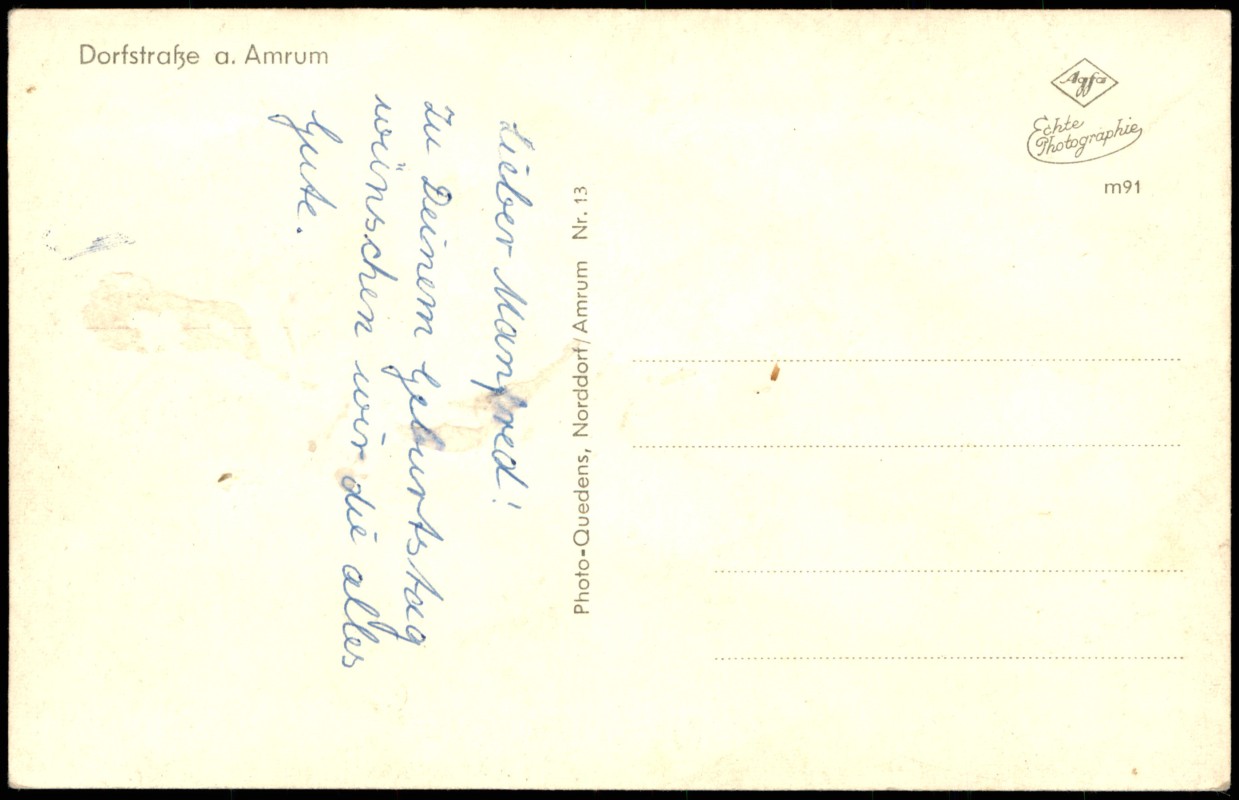 Dorfstraße a. Amrum
Lieber Manfred!
Zu Deinem Geburtstag
wünschen wir die alles
Gute.
Photo-Quedens, Norddorf/Amrum Nr. 13
Agfa
Echte
Photographie
m91